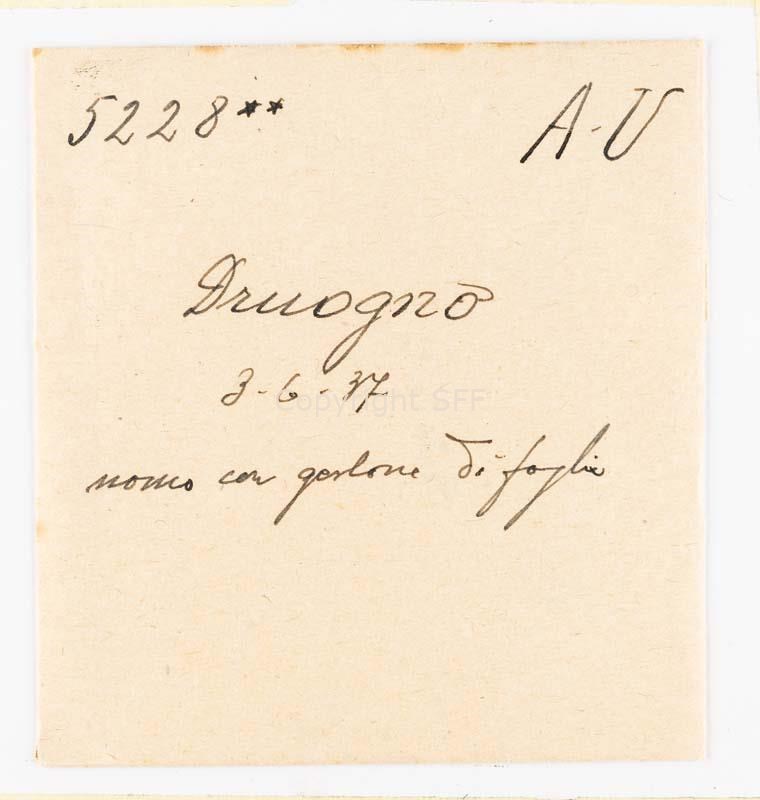 5228** A-V
Druogno
3-6-37
Copyright SFF
uomo con gerlone di foglie